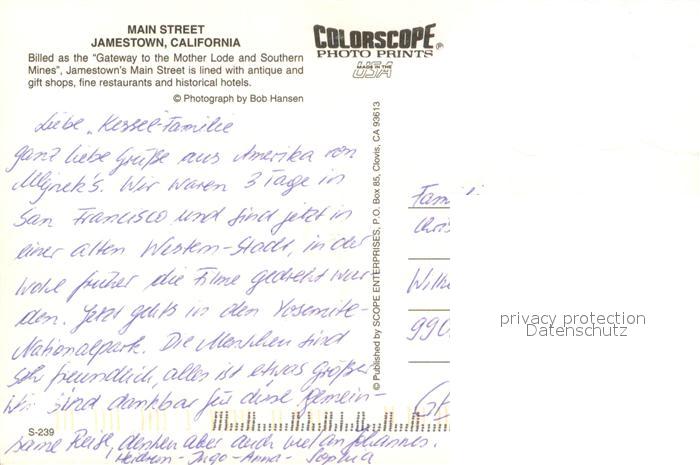 MAIN STREET
JAMESTOWN, CALIFORNIA
Billed as the "Gateway to the Mother Lode and Southern
Mines", Jamestown's Main Street is lined with antique and
gift shops, fine restaurants and historical hotels.
© Photograph by Bob Hansen
COLORSCOPE®
PHOTO PRINTS
MADE IN THE
USA
Liebe "Kessel-Familie
ganz liebe Grüße aus Amerika von
Mlynek's. Wir waren 3 Tage in
San Francisco und sind jetzt in
einer alten Western-Stadt, in der
wohl früher die Filme gedreht wur-
den. Jetzt gehts in den Yosemite-
Nationalpark. Die Menschen sind
sehr freundlich, alles ist etwas größer
Wir sind dankbar für diese gemein-
same Reise, denken aber auch viel an Johannes.
Ingo - Anna - Sophia
S-239
© Published by SCOPE ENTERPRISES, P.O. Box 85, Clovis, CA 93613
Fami
Chris
Wilh
990
privacy protection
Datenschutz